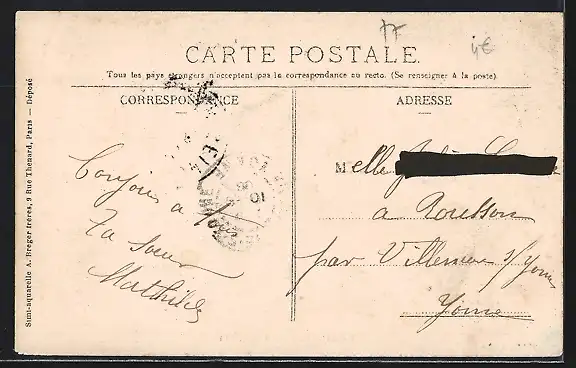 17
4€
CARTE POSTALE.
Tous les pays étrangers n'acceptent pas la correspondance au recto. (Se renseigner à la poste)
CORRESPONDANCE
ADRESSE
Melle
a Rousson
par Villeneuve s/Yonne
Yonne
Bonjour a
Ta soeur
Mathilde
Simi-aquarelle A. Breger frères, 9 Rue Thenard, Paris — Déposé